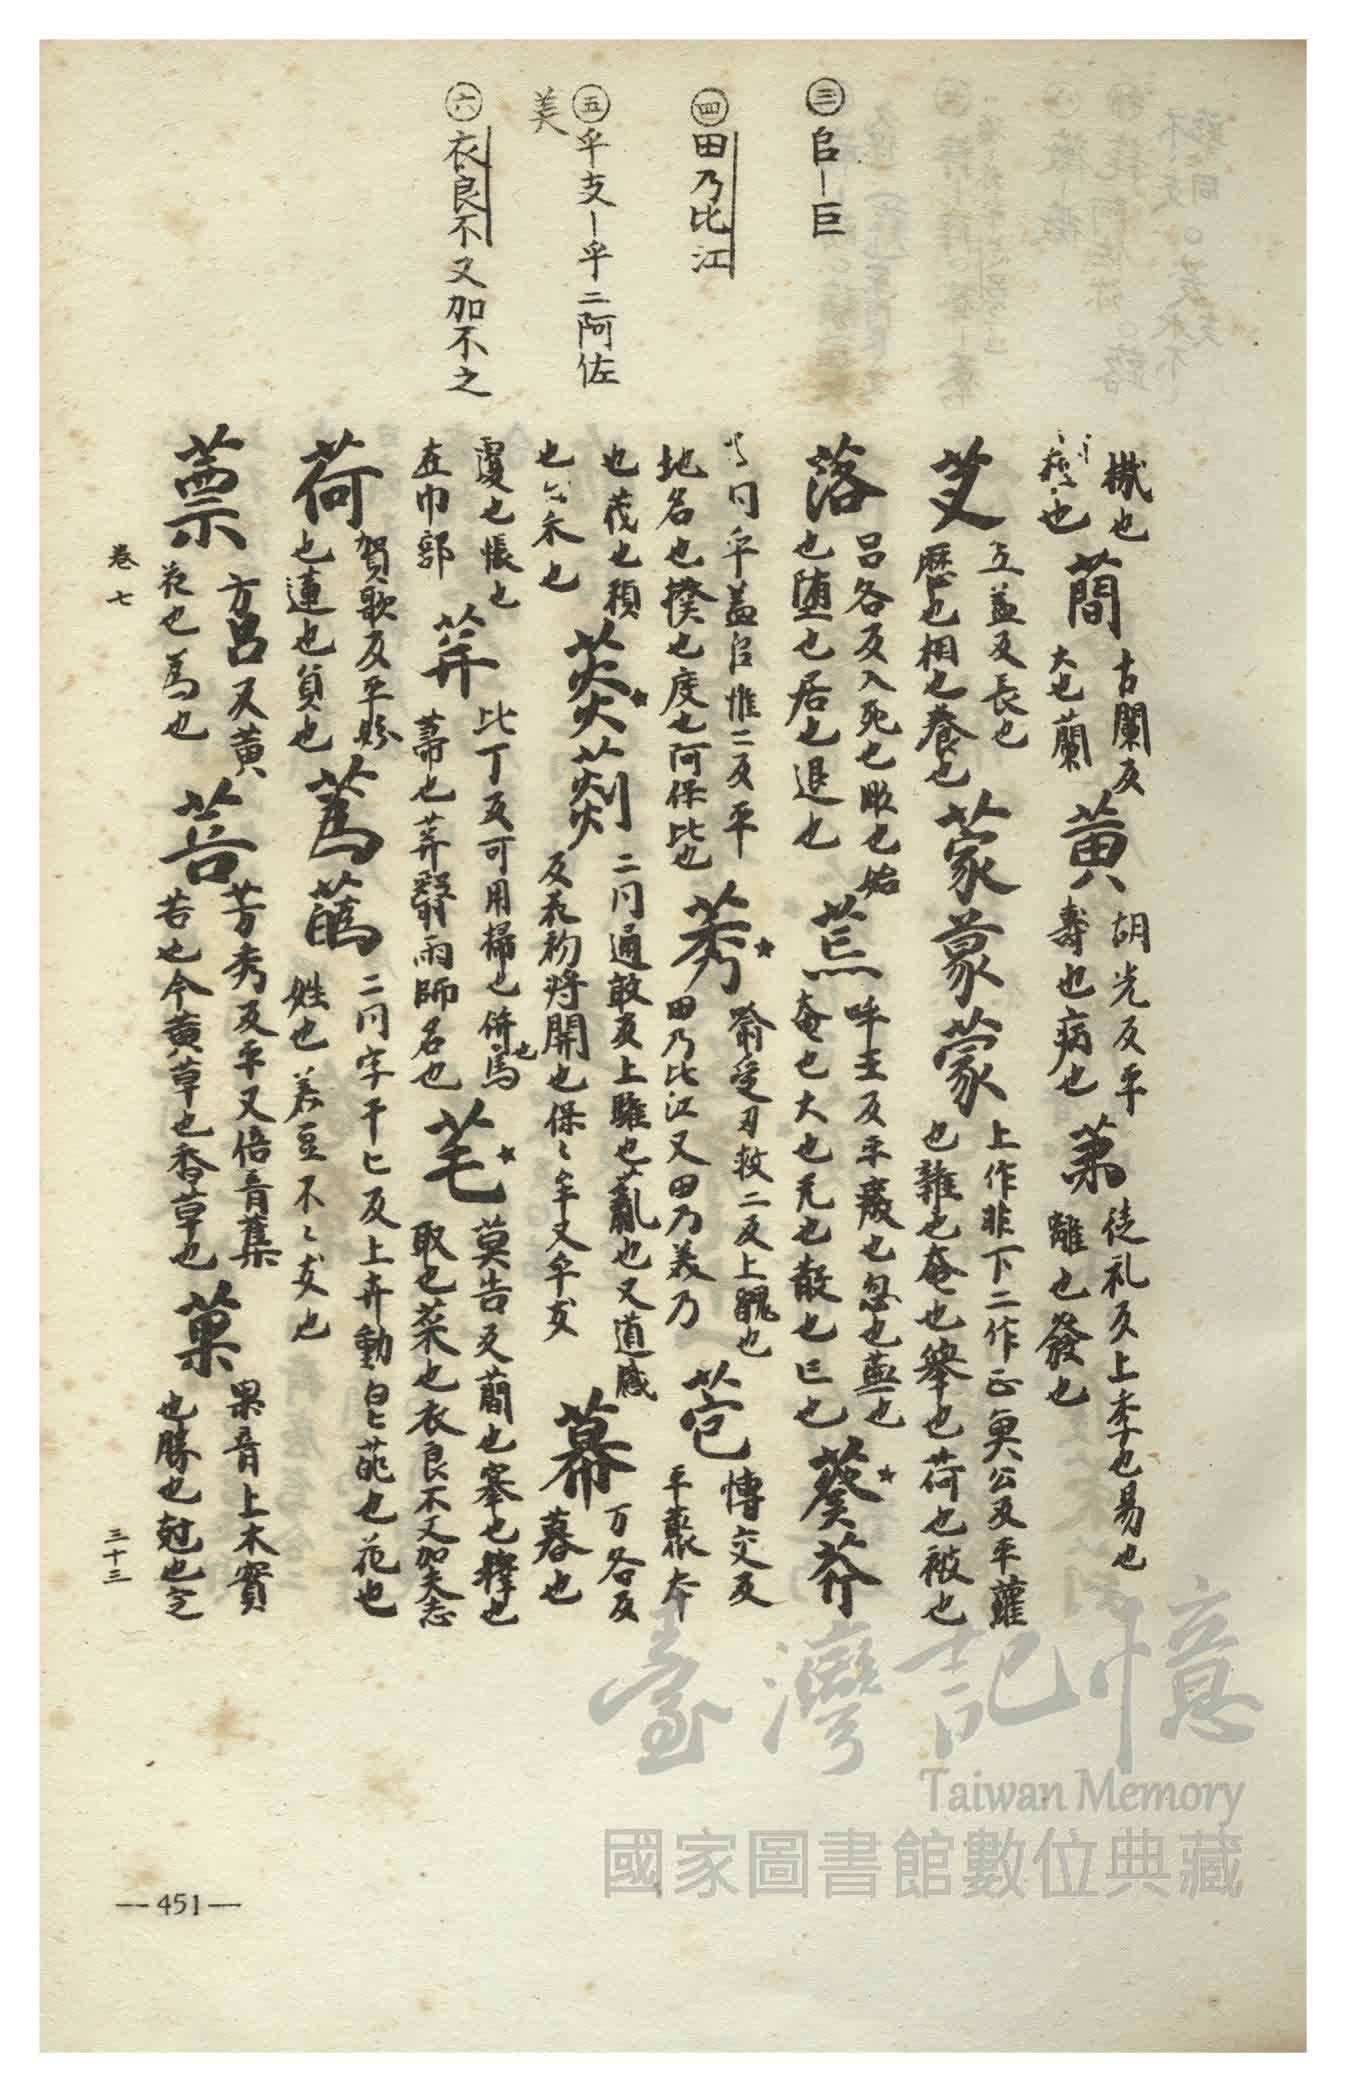 ㊂ 㠯—巨
㊃ 田乃比江
㊄ 乎支—乎二阿佐
美
㊅ 衣良不又加不之
橶也
也 蕳 古闌反 大也蘭 黄 胡光反平 壽也病也 苐 徒礼反上李也易也 離也發也
艾 五盖反長也 歷也相也養也 蒙䝉蒙 上作非下二作正莫公反平蘿 也雜也奄也舉也荷也被也
落 呂各反入死也敗也始 也堕也居也退也 荒 呼王反平癈也忽也蕪也 奄也大也也散也亡也 葵莽
同乎盖㠯惟二反平 地名也揆也度也阿保比也 莠 喻受刃救二反上醜也 田乃比江又田乃美乃 苞 博交反 平藂本
也茂也積 也木也 菼䓾 二同通敢反上騅也薍也又道感 反花初将開也保乎又乎支 幕 万各反 暮也
覆也帳也 在巾部 荓 比丁反可用掃也併馬也 蓱也荓翳雨師名也 芼 莫告反蕳也搴也擇也 取也菜也衣良不又加夫志
荷 賀歌反平 也連也負也 蒍蔿 二同字干匕反上卉動皃葩也花也 姓也
蔈 方吕又黄 花也為也 菩 芳秀反平又倍音蓲 苦也今黄草也香草也 菓 果音上木實 也勝也尅也定
卷七
三十三
—451—
臺灣記憶
Taiwan Memory
國家圖書館數位典藏